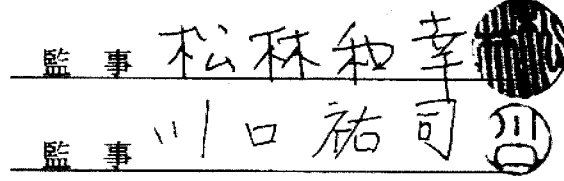 監事 松林和幸
監事 川口祐司 川口